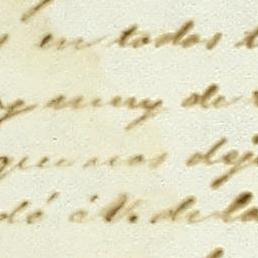 en todos
muy de
que nos dej
dó á V. de la